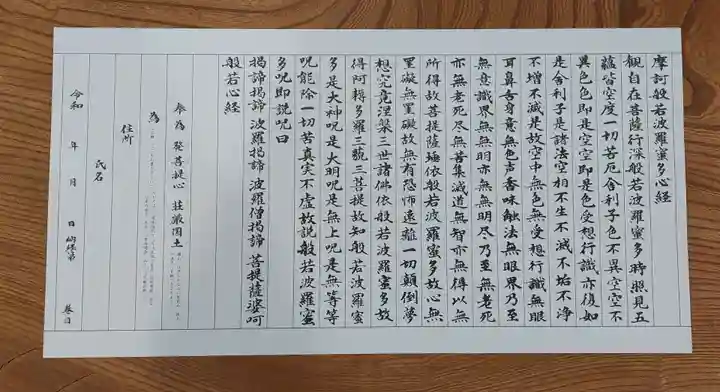 摩訶般若波羅蜜多心経
観自在菩薩行深般若波羅蜜多時照見五
蘊皆空度一切苦厄舎利子色不異空空不
異色色即是空空即是色受想行識亦復如
是舎利子是諸法空相不生不滅不垢不浄
不増不減是故空中無色無受想行識無眼
耳鼻舌身意無色声香味触法無眼界乃至
無意識界無無明亦無無明尽乃至無老死
亦無老死尽無苦集滅道無智亦無得以無
所得故菩提薩埵依般若波羅蜜多故心無
罣礙無罣礙故無有恐怖遠離一切顛倒夢
想究竟涅槃三世諸佛依般若波羅蜜多故
得阿耨多羅三藐三菩提故知般若波羅蜜
多是大神呪是大明呪是無上呪是無等等
呪能除一切苦真実不虚故説般若波羅蜜
多呪即説呪曰
掲諦掲諦 波羅掲諦 波羅僧掲諦 菩提薩婆呵
般若心経
奉為 発菩提心 荘厳国土
為
住所
氏名
令和 年 月 日 第 巻目